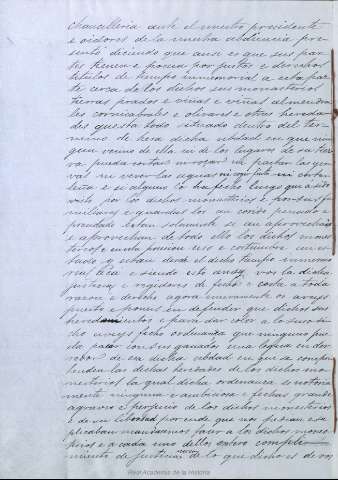 chancilleria ante el nuestro presidente
e oidores de la nuestra abdiencia pre
sentó deciendo que ansi es que sus par
tes tienen e poseen por justos e derechos
titulos de tiempo inmemorial a esta par
te cerca de los dichos sus monasterios
tierras prados e viñas e almendra
les cornicabrales e olivares e otras hereda
des questa todo situado dentro del ter
mino de esta dicha cibdad en que nin
gun vecino de ella ni de los lugares de su tie
rra pueda cortar ni rozar ni pastar las yer
vas ni vever las aguas ni coger fruta ni cortar
leña e si alguno lo ha fecho luego que a sido
visto por los dichos monasterios e por sus fa
miliares e guardas los an corrido penado e
prendado e tan solamente se an aprovechado
e aprovechan de todo ello los dichos monas
terios e en esta posesion uso e costumbre an es
tado y estan desde el dicho tiempo inmemo
rial aca e siendo esto ansy vos la dicha
justicia e regidores de fecho e contra toda
razon e derecho agora nuevamente os aveys
puesto e poneis en defender que dichos sus
heredamientos e para dar color a lo susodi
cho aveys fecho ordenanza que ninguno pue
da pacer con sus ganados una legua en der
redor de esa dicha cibdad en que se compre
henden las dichas heredades de los dichos mo
nesterios la qual dicha ordenanza es notoria
mente ninguna e ambiciosa e fecha en grande
agravio e perjuicio de los dichos monesterios
e de su libertad por ende que nos pedian e su
plicaban mandasemos facer a los dichos mones
terios e a cada uno dellos entero complimiento
de justicia de lo que dicho es de vos
Real Academia de la Historia